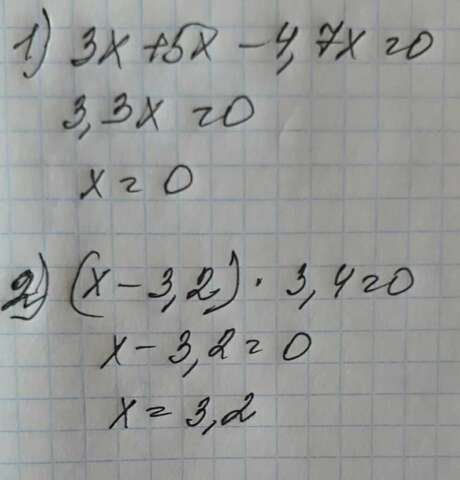 1) 3x + 5x - 4,7x = 0
3,3x = 0
x = 0
2) (x - 3,2) · 3,4 = 0
x - 3,2 = 0
x = 3,2